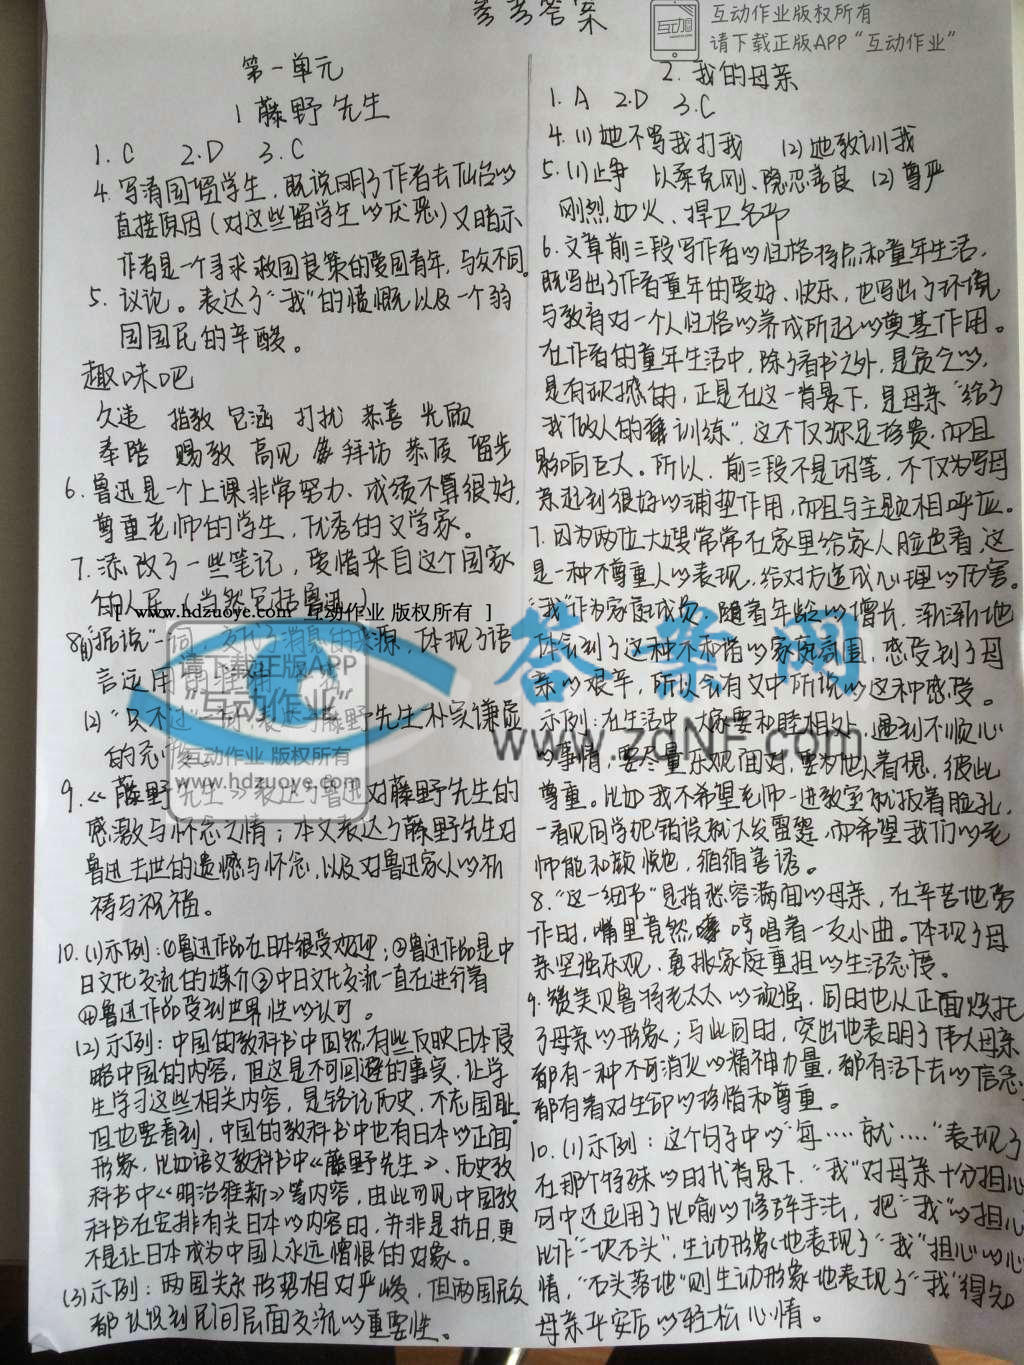 参考答案
互动作业版权所有
请下载正版APP“互动作业”
互动
第一单元
1 藤野先生
1. C 2. D 3. C
4. 写清国留学生，既说明了作者去仙台的
直接原因（对这些留学生的厌恶）又暗示
作者是一个寻求救国良策的爱国青年，与众不同。
5. 议论。表达了“我”的愤慨以及一个弱
国国民的辛酸。
趣味吧
久违 指教 包涵 打扰 恭喜 光顾
奉陪 赐教 高见 拜访 恭候 留步
6. 鲁迅是一个上课非常努力、成绩不算很好，
尊重老师的学生，优秀的文学家。
7. 添改了一些笔记，爱惜来自这个国家
的人民（当然包括鲁迅）
[ www.hdzuoye.com 互动作业 版权所有 ]
8.(1)“据说”一词，交代了消息的来源，体现了语
言运用
请下载正版APP
“互动作业”
(2)“只不过”一词表达了藤野先生朴实谦虚
的
互动作业 版权所有
www.hdzuoye.com
9.《藤野先生》表达了鲁迅对藤野先生的
感激与怀念之情；本文表达了藤野先生对
鲁迅去世的遗憾与怀念，以及对鲁迅家人的祈
祷与祝福。
10. (1)示例：①鲁迅作品在日本很受欢迎；②鲁迅作品是中
日文化交流的媒介③中日文化交流一直在进行着
④鲁迅作品受到世界性的认可。
(2)示例：中国的教科书中固然有些反映日本侵
略中国的内容，但这是不可回避的事实，让学
生学习这些相关内容，是铭记历史，不忘国耻。
但也要看到，中国的教科书中也有日本的正面
形象，比如语文教科书中《藤野先生》、历史教
科书中《明治维新》等内容，由此可见中国教
科书在安排有关日本的内容时，并非是抗日，更
不是让日本成为中国人永远憎恨的对象。
(3)示例：两国关系形势相对严峻，但两国民众
都认识到民间层面交流的重要性。
2. 我的母亲
1. A 2. D 3. C
4. (1)她不骂我打我 (2)她教训我
5. (1)止争 以柔克刚、隐忍善良 (2)尊严
刚烈如火、捍卫名声
6. 文章前三段写作者的性格特点和童年生活，
既写出了作者童年的爱好、快乐，也写出了环境
与教育对一个人性格的养成所起的奠基作用。
在作者的童年生活中，除了看书之外，是贫乏的，
是有缺憾的，正是在这一背景下，是母亲“给了
我做人的训练”，这不仅弥足珍贵，而且
影响巨大。所以，前三段不是闲笔，不仅为写母
亲起到很好的铺垫作用，而且与主题相呼应。
7. 因为两位大嫂常常在家里给家人脸色看，这
是一种不尊重人的表现，给对方造成心理的伤害。
“我”作为家庭成员，随着年龄的增长，渐渐地
体会到了这种不和谐的家庭氛围，感受到了母
亲的艰辛，所以会有文中所说的这种感受。
示例：在生活中，大家要和睦相处，遇到不顺心
的事情，要尽量乐观面对，要为他人着想，彼此
尊重。比如我不希望老师一进教室就板着脸孔，
一看见同学犯错误就大发雷霆，而希望我们的老
师能和颜悦色，循循善诱。
答案网
www.zqNF.com
8. “这一细节”是指愁容满面的母亲，在辛苦地劳
作时，嘴里竟然哼唱着一支小曲。体现了母
亲坚强乐观、勇挑家庭重担的生活态度。
9. 赞美贝鲁特老太太的顽强，同时也从正面烘托
了母亲的形象；与此同时，突出地表明了伟大母亲
都有一种不可消灭的精神力量，都有活下去的信念，
都有着对生命的珍惜和尊重。
10. (1)示例：这个句子中的“每……就……”表现了
在那个特殊的时代背景下，“我”对母亲十分担心
句中还运用了比喻的修辞手法，把“我”的担心
比作“一块石头”，生动形象地表现了“我”担心的心
情，“石头落地”则生动形象地表现了“我”得知
母亲平安后的轻松心情。